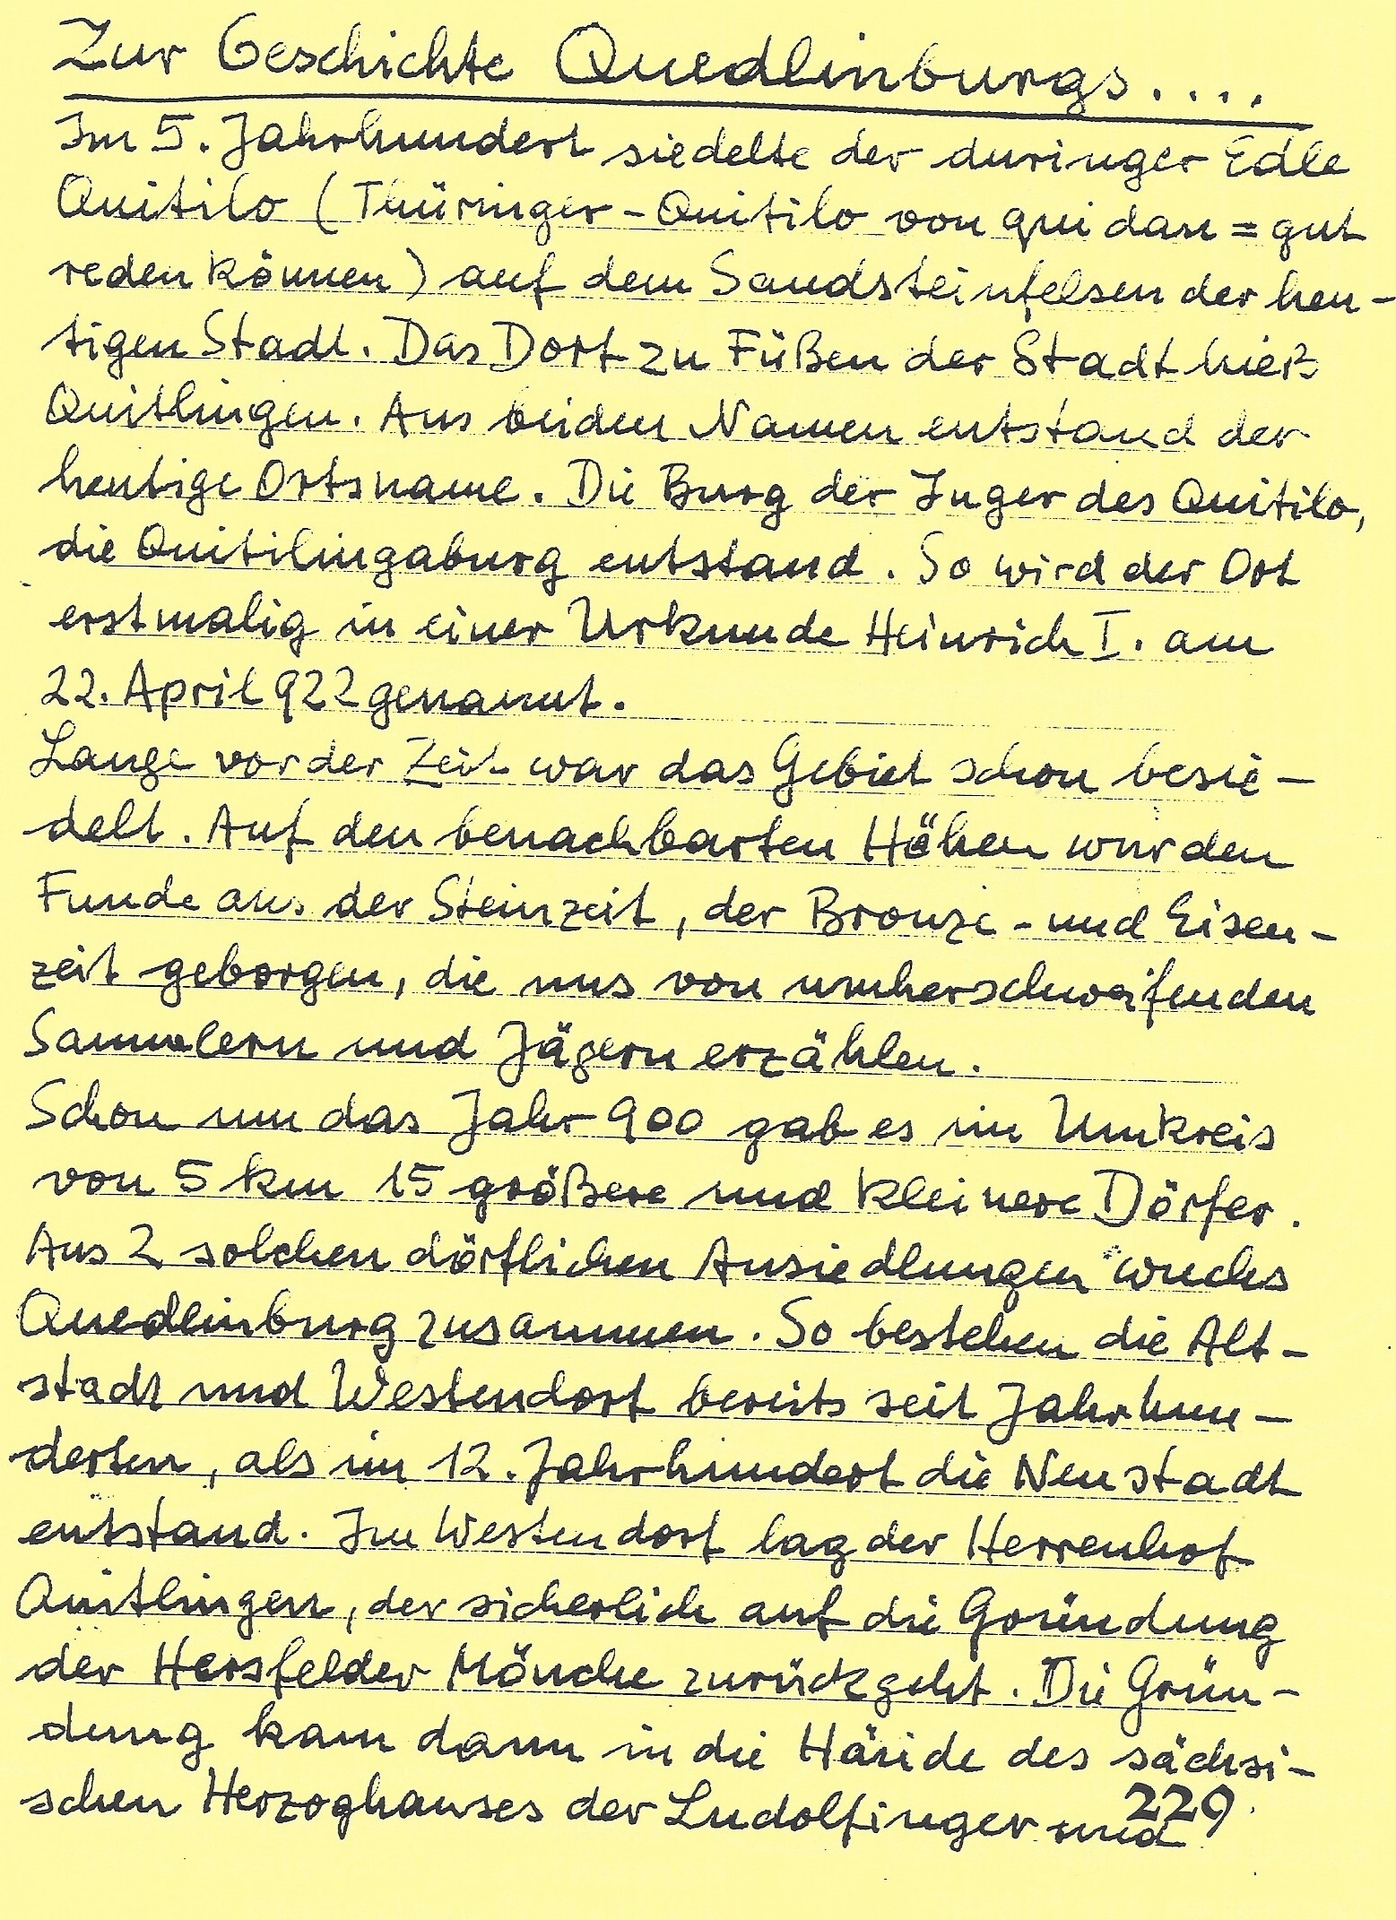 Zur Geschichte Quedlinburgs....
Im 5. Jahrhundert siedelte der duringer Edle
Quitilo (Thüringer-Quitilo von quidan = gut
reden können) auf dem Sandsteinfelsen der heu-
tigen Stadt. Das Dorf zu Füßen der Stadt hieß
Quitlingen. Aus beiden Namen entstand der
heutige Ortsname. Die Burg der Inger des Quitilo,
die Quitilingaburg entstand. So wird der Ort
erstmalig in einer Urkunde Heinrich I. am
22. April 922 genannt.
Lange vor der Zeit war das Gebiet schon besie-
delt. Auf den benachbarten Höhen wurden
Funde aus der Steinzeit, der Bronze- und Eisen-
zeit geborgen, die uns von umherschweifenden
Sammlern und Jägern erzählen.
Schon um das Jahr 900 gab es im Umkreis
von 5 km 15 größere und kleinere Dörfer.
Aus 2 solchen dörflichen Ansiedlungen wuchs
Quedlinburg zusammen. So bestehen die Alt-
stadt und Westendorf bereits seit Jahrhun-
derten, als im 12. Jahrhundert die Neustadt
entstand. Im Westendorf lag der Herrenhof
Quitlingen, der sicherlich auf die Gründung
der Hersfelder Mönche zurückgeht. Die Grün-
dung kam dann in die Hände des sächsi-
schen Herzoghauses der Ludolfinger und
229